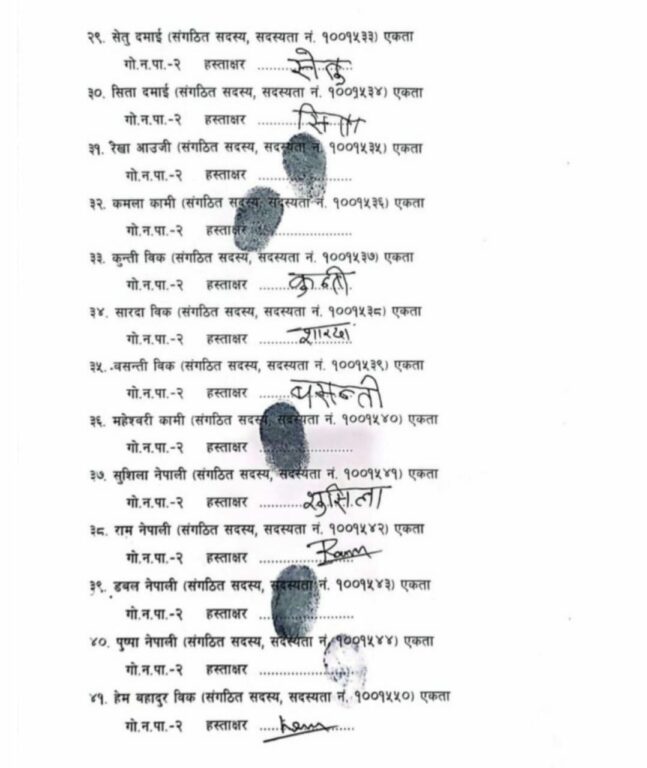 २९. सेतु दमाई (संगठित सदस्य, सदस्यता नं. १००१५३३) एकता
गो.न.पा.-२ हस्ताक्षर ..........सेतु
३०. सिता दमाई (संगठित सदस्य, सदस्यता नं. १००१५३४) एकता
गो.न.पा.-२ हस्ताक्षर ..........सिता
३१. रेखा आउजी (संगठित सदस्य, सदस्यता नं. १००१५३५) एकता
गो.न.पा.-२ हस्ताक्षर ........................
३२. कमला कामी (संगठित सदस्य, सदस्यता नं. १००१५३६) एकता
गो.न.पा.-२ हस्ताक्षर ........................
३३. कुन्ती विक (संगठित सदस्य, सदस्यता नं. १००१५३७) एकता
गो.न.पा.-२ हस्ताक्षर ........कुन्ती
३४. सारदा विक (संगठित सदस्य, सदस्यता नं. १००१५३८) एकता
गो.न.पा.-२ हस्ताक्षर ..........शारदा
३५. बसन्ती विक (संगठित सदस्य, सदस्यता नं. १००१५३९) एकता
गो.न.पा.-२ हस्ताक्षर ........वसन्ती
३६. महेश्वरी कामी (संगठित सदस्य, सदस्यता नं. १००१५४०) एकता
गो.न.पा.-२ हस्ताक्षर ........................
३७. सुशिला नेपाली (संगठित सदस्य, सदस्यता नं. १००१५४१) एकता
गो.न.पा.-२ हस्ताक्षर ............सुसिला
३८. राम नेपाली (संगठित सदस्य, सदस्यता नं. १००१५४२) एकता
गो.न.पा.-२ हस्ताक्षर ..............Ram
३९. डबल नेपाली (संगठित सदस्य, सदस्यता नं. १००१५४३) एकता
गो.न.पा.-२ हस्ताक्षर ........................
४०. पुष्पा नेपाली (संगठित सदस्य, सदस्यता नं. १००१५४४) एकता
गो.न.पा.-२ हस्ताक्षर ........................
४१. हेम बहादुर विक (संगठित सदस्य, सदस्यता नं. १००१५५०) एकता
गो.न.पा.-२ हस्ताक्षर ........................